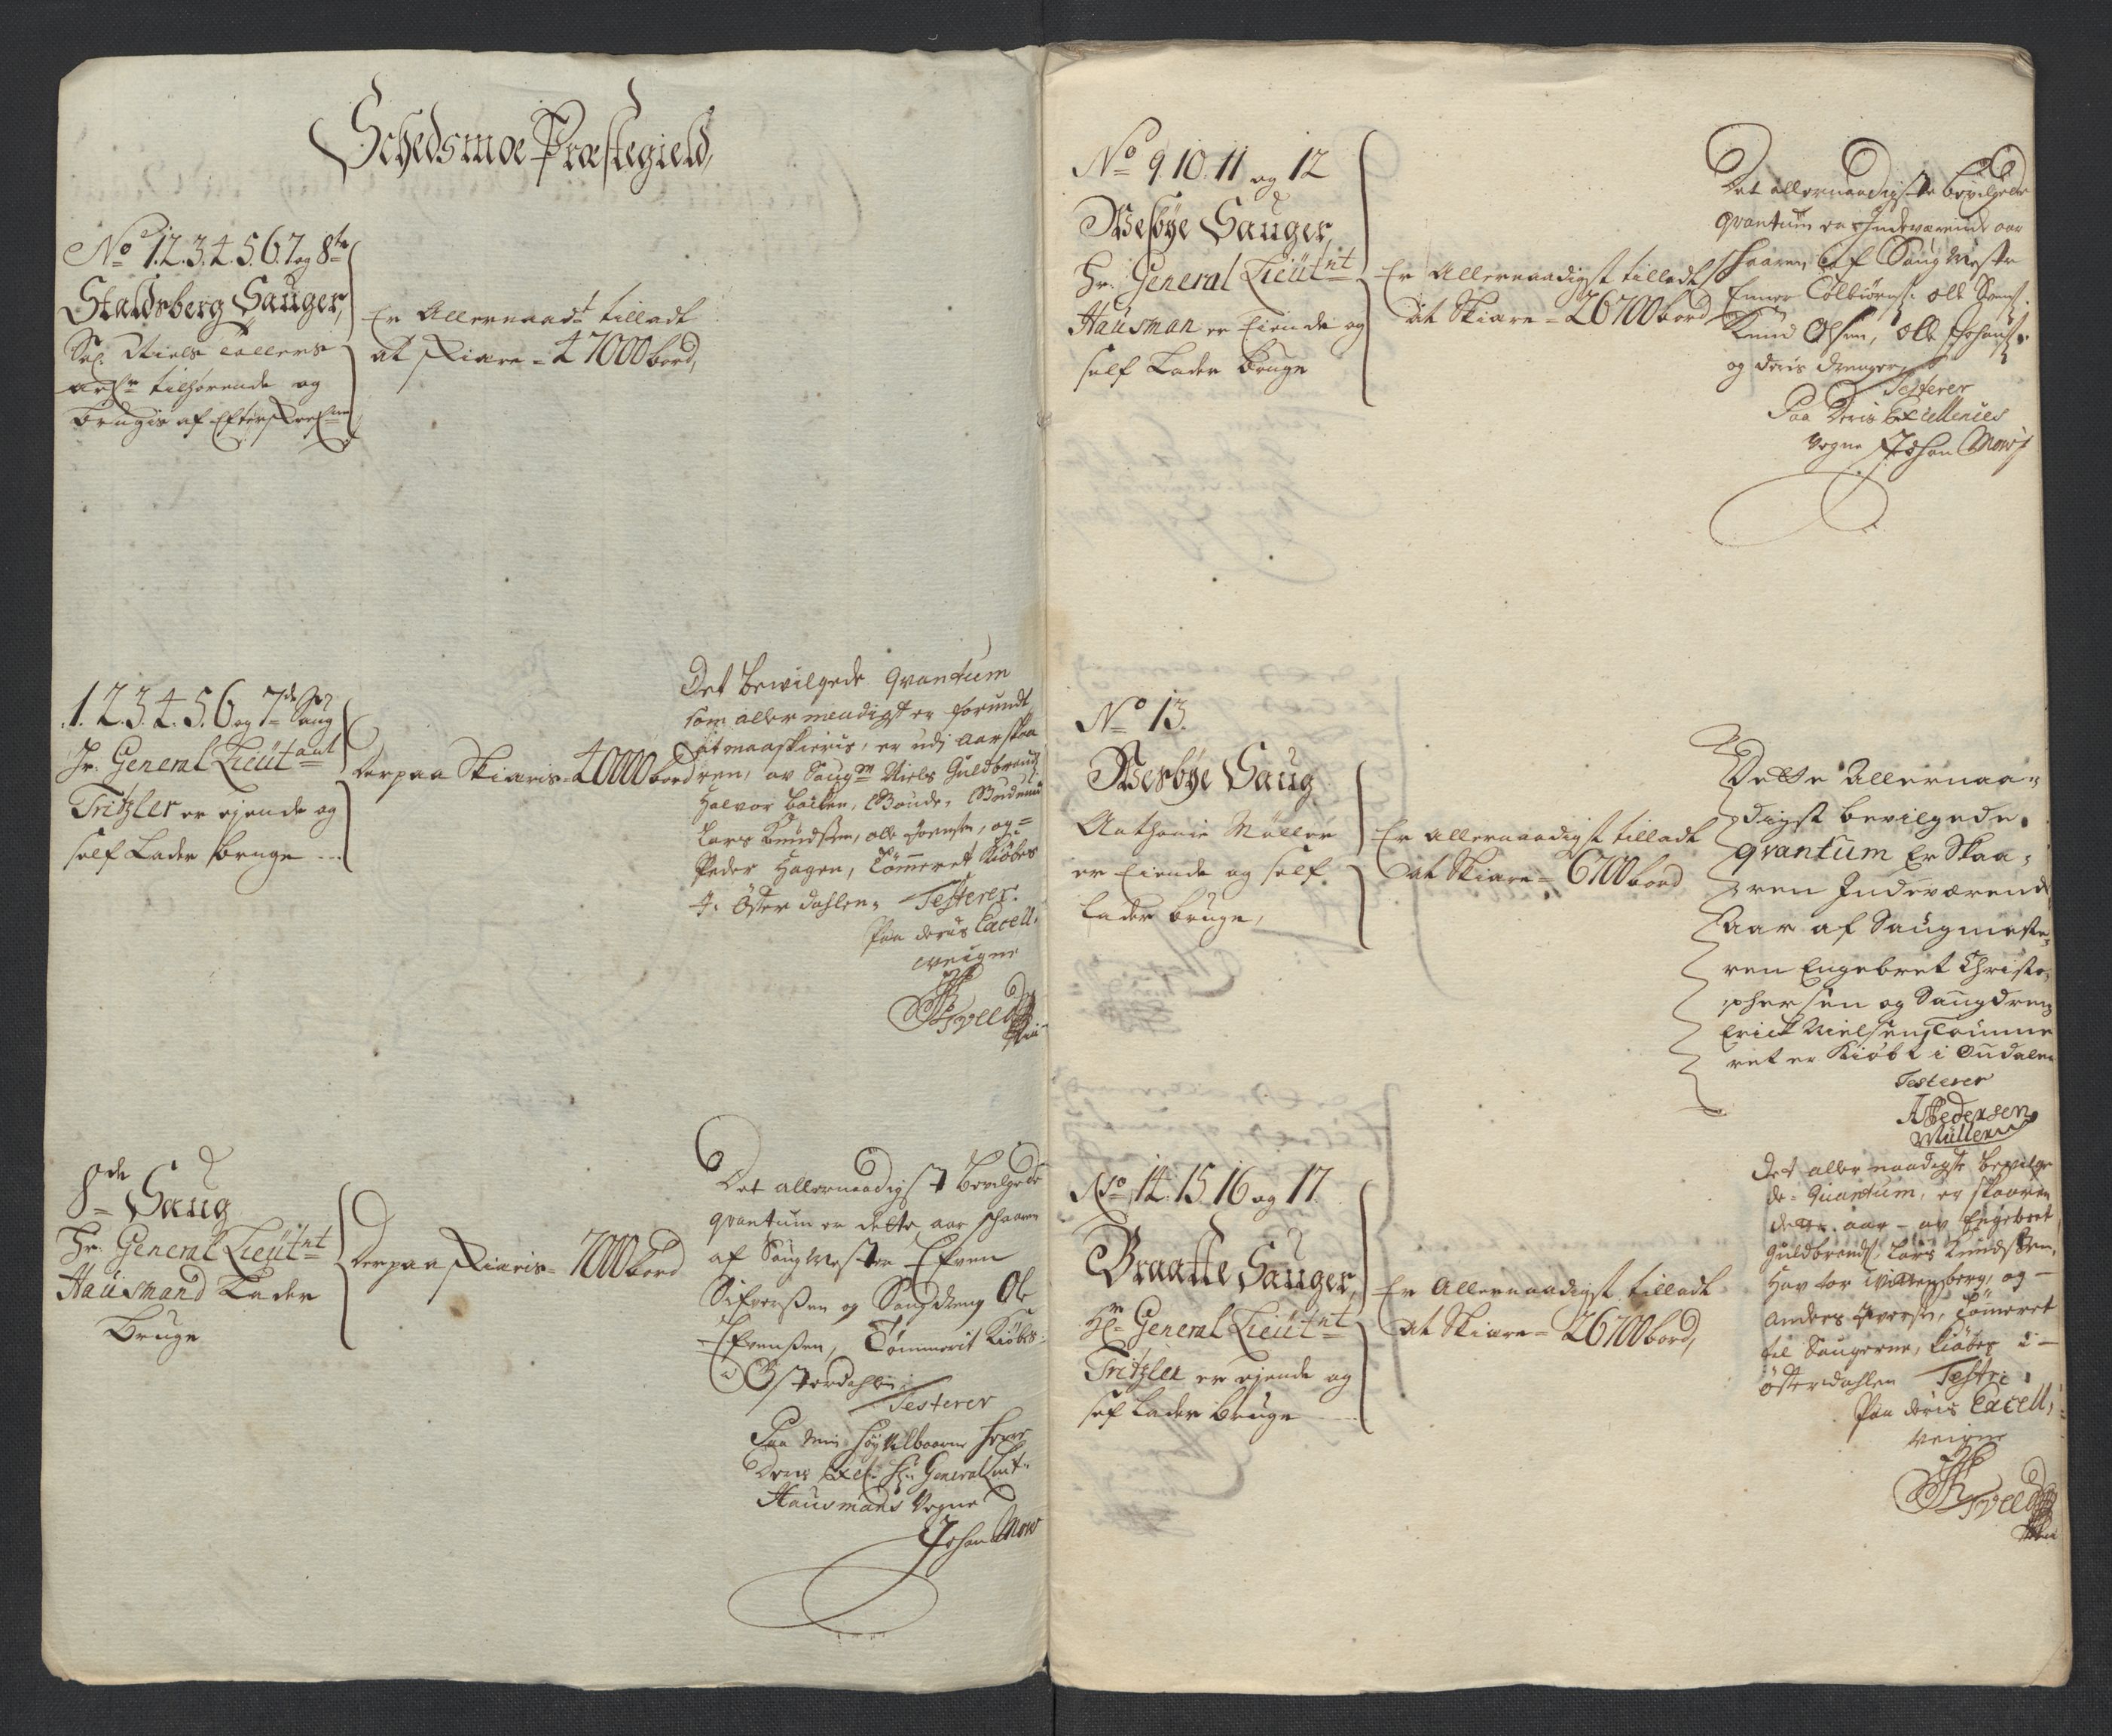 Schedsmoe Præstegield,
No 1. 2. 3. 4. 5. 6. 7. og 8te
Stalsberg Sauger,
Sal. Niels Tollers
tilhørende og
brugis af Efterskrefne
Er Allernaadt tilladt
at skiære = 47000 bord,
1. 2. 3. 4. 5. 6 og 7de Saug
Hr. General Lieutant
Tritzler er ejende og
self Lader bruge
Derpaa Skiæris = 40000 bord
Det bewilgede qvantum
som aller naadigst er forundt
at maa skieris, er udj aar skaa
ren, av Saugm Niels Guldbrands
Halvor Backen,
Lars Knudssen, olle og =
Peder Hagen, Tømmeret Kiøbes
J. Øster dahlen, Testerer.
Paa deris Excell.
veigne
8de Saug
Hr. General Lieutnt
Hausmand Lader
Bruge
Derpaa skiæris = 7000 bord
Det allernaadigst Bevilgede
qvantum er dette aar schaaren
af Saug Mester Efven
Sifverssen og Saugdreng Ole
Efvenssen, Tømmerit Kiøbes
i Østerdahlen
Testerer
Paa min Høy Velbaarne Herre
Deris Exel. Hr. General Lieut.
Hausmans Vegne
Johan Mow
No 9. 10. 11 og 12
Wesbye Sauger,
Hr. General Lieutnt
Hausman er Eiende og
self Lader Bruge
Er Allernaadigst tilladt
at Skiære = 26700 bord
Det allernaadigste bevilgede
qvantum er Indeværende aar
schaaren af Saug Mester
Enner Tolbiørns. olle
Knud Olsen, Olle Johans.
og deris drenger
Testerer
Paa Deris Excellences
Vegne Johan Mow
No 13.
Wesbye Saug
Anthonie Müller
er Eiende og self
Lader bruge,
Er Allernaadigst tilladt
at Skiære = 6700 bord
Dette Allernaa=
digst bevilgede
qvantum Er Skaa=
ren Indeværende
aar af Saugmeste=
ren Engebret Christo=
phersen og Saugdreng
Erick Nielsen, Tømme
ret er Kiøbt i Oudalen
Testerer
APedersen
Müller
No 14. 15 16 og 17.
Braatte Sauger,
Hr General Lieutnt
Tritzler er ejende og
self Lader bruge
Er Allernaadigst tilladt
at Skiære = 26700 bord,
Det aller naadigste bevilge
de = Quantum, er skaaren
dette aar = av Engebret
Guldbrands. Lars Knudssen,
Havfor og =
Anders Tømeret
til Saugerne, Kiøbes i =
Østerdahlen Testr:
Paa deris Excell,
veigne